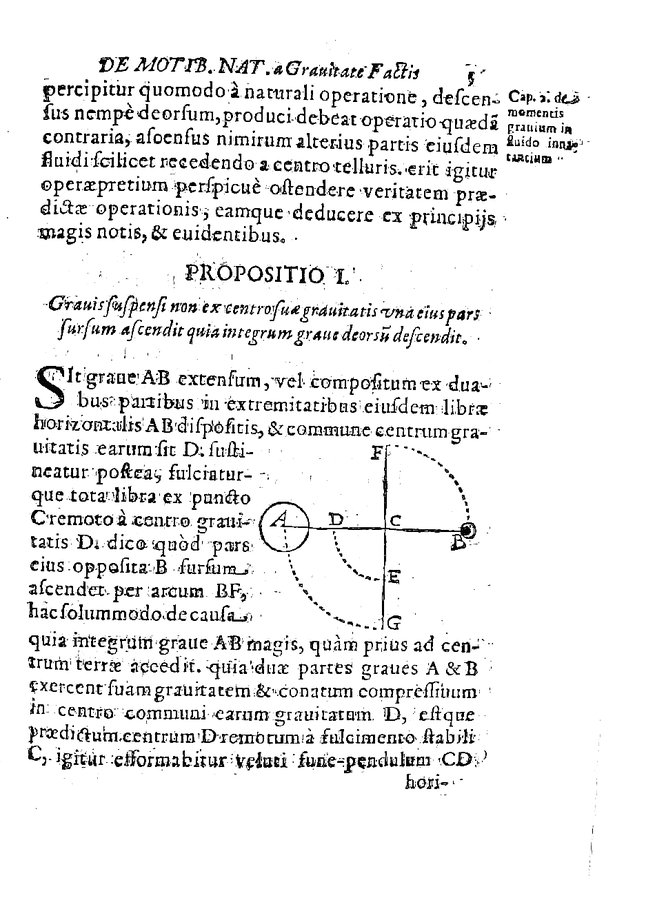 DE MOTIB. NAT. a Grauitate Factis 5
percipitur quomodo à naturali operatione, descen-
sus nempè deorsum, produci debeat operatio quædã
contraria, ascensus nimirum alterius partis eiusdem
fluidi scilicet recedendo a centro telluris. erit igitur
operæpretium perspicuè ostendere veritatem præ-
dictæ operationis, eamque deducere ex principijs
magis notis, & euidentibus.
Cap. 2. de
momentis
grauium in
fluido inna-
tantium
PROPOSITIO I.
Grauis suspensi non ex centro suæ grauitatis vna eius pars
sursum ascendit quia integrum graue deorsũ descendit.
SIt graue AB extensum, vel compositum ex dua-
bus partibus in extremitatibus eiusdem libræ
horizontalis AB dispositis, & commune centrum gra-
uitatis earum sit D. susti-
neatur postea, fulciatur-
que tota libra ex puncto
C remoto à centro graui-
tatis D. dico quòd pars
eius opposita B sursum
ascendet per arcum BF,
hac solummodo de causa
F
A D C
B
E
G
quia integrum graue AB magis, quàm prius ad cen-
trum terræ accedit. quia duæ partes graues A & B
exercent suam grauitatem & conatum compressiuum
in centro communi earum grauitatum D, estque
prædictum centrum D remotum à fulcimento stabili
C, igitur efformabitur veluti fune-pendulum CD
hori-